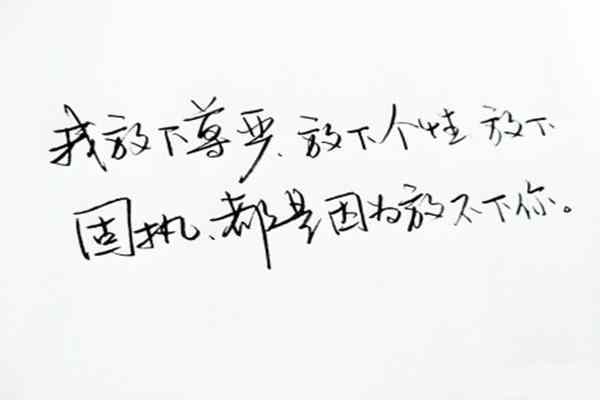 我放下尊严、放下个性 放下
固执、都是因为放不下你。